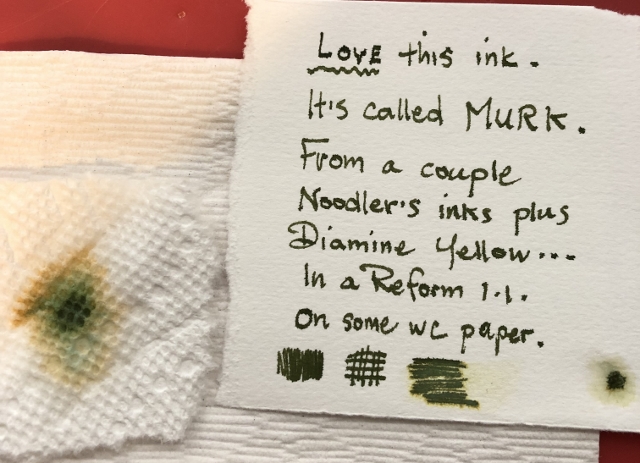 Love this ink.
It's called MURK.
From a couple
Noodler's inks plus
Diamine Yellow...
In a Reform 1.1.
On some wc paper.